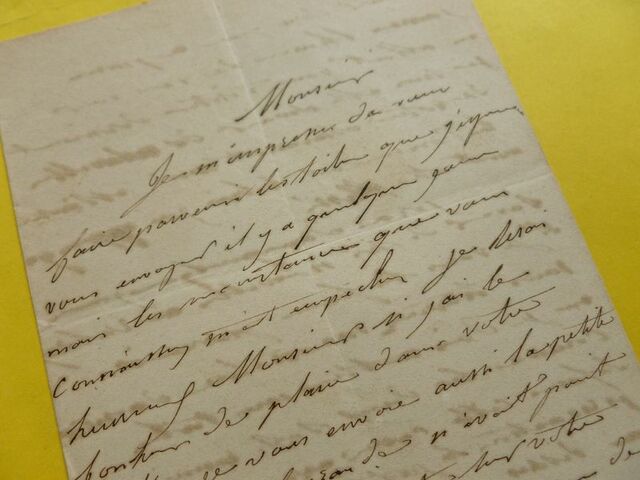 Monsieur
Je m'empresse de vous
faire parvenir les toiles que j'espérais
vous envoyer il y a quelques jours
mais les circonstances que vous
connaissez m'ont empêché Je serai
heureux Monsieur si j'ai le
bonheur de plaire dans votre
Je vous envoie aussi la petite
n'avait point
votre
de